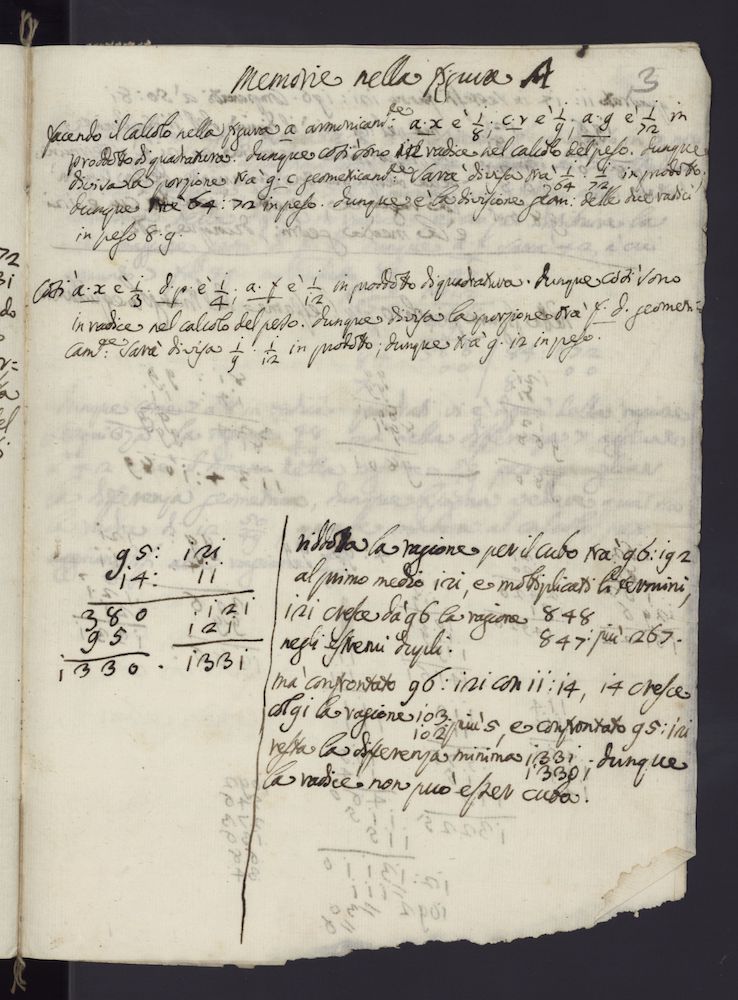 Memorie nella figura A
3
Facendo il calcolo nella figura a armonicam.te a. x è 1/8, c. r è 1/9, a. g è 1/72 in
prodotto di quadratura. Dunque così sono in radice nel calcolo del peso. Dunque
divisa la porzione trà g. c geometricam.te sarà divisa trà 1/64 : 1/72 in prodotto,
dunque trà 64 : 72 in peso. Dunque è la divisione geom: delle due radici
in peso 8. 9.
Così a. x è 1/3. d. p. è 1/4. a. f è 1/12 in prodotto di quadratura. Dunque così sono
in radice nel calcolo del peso. Dunque divisa la porzione trà f. d. geometri=
cam.te sarà divisa 1/9. 1/12 in prodotto; dunque trà 9. 12 in peso.
95: 121
14: 11
380 121
95 121
1330. 1331
ridotta la ragione per il cubo trà 96: 192
al primo medio 121, e moltiplicati li termini,
121 cresce da 96 la ragione 848
negli estremi dupli. 847: più 1267.
ma confrontato 96: 121 con 11: 14, 14 cresce
col 91 la ragione 103/102 più 5, e confrontato 95: 121
resta la differenza minima 1331/1330; dunque
la radice non può esser cuba.